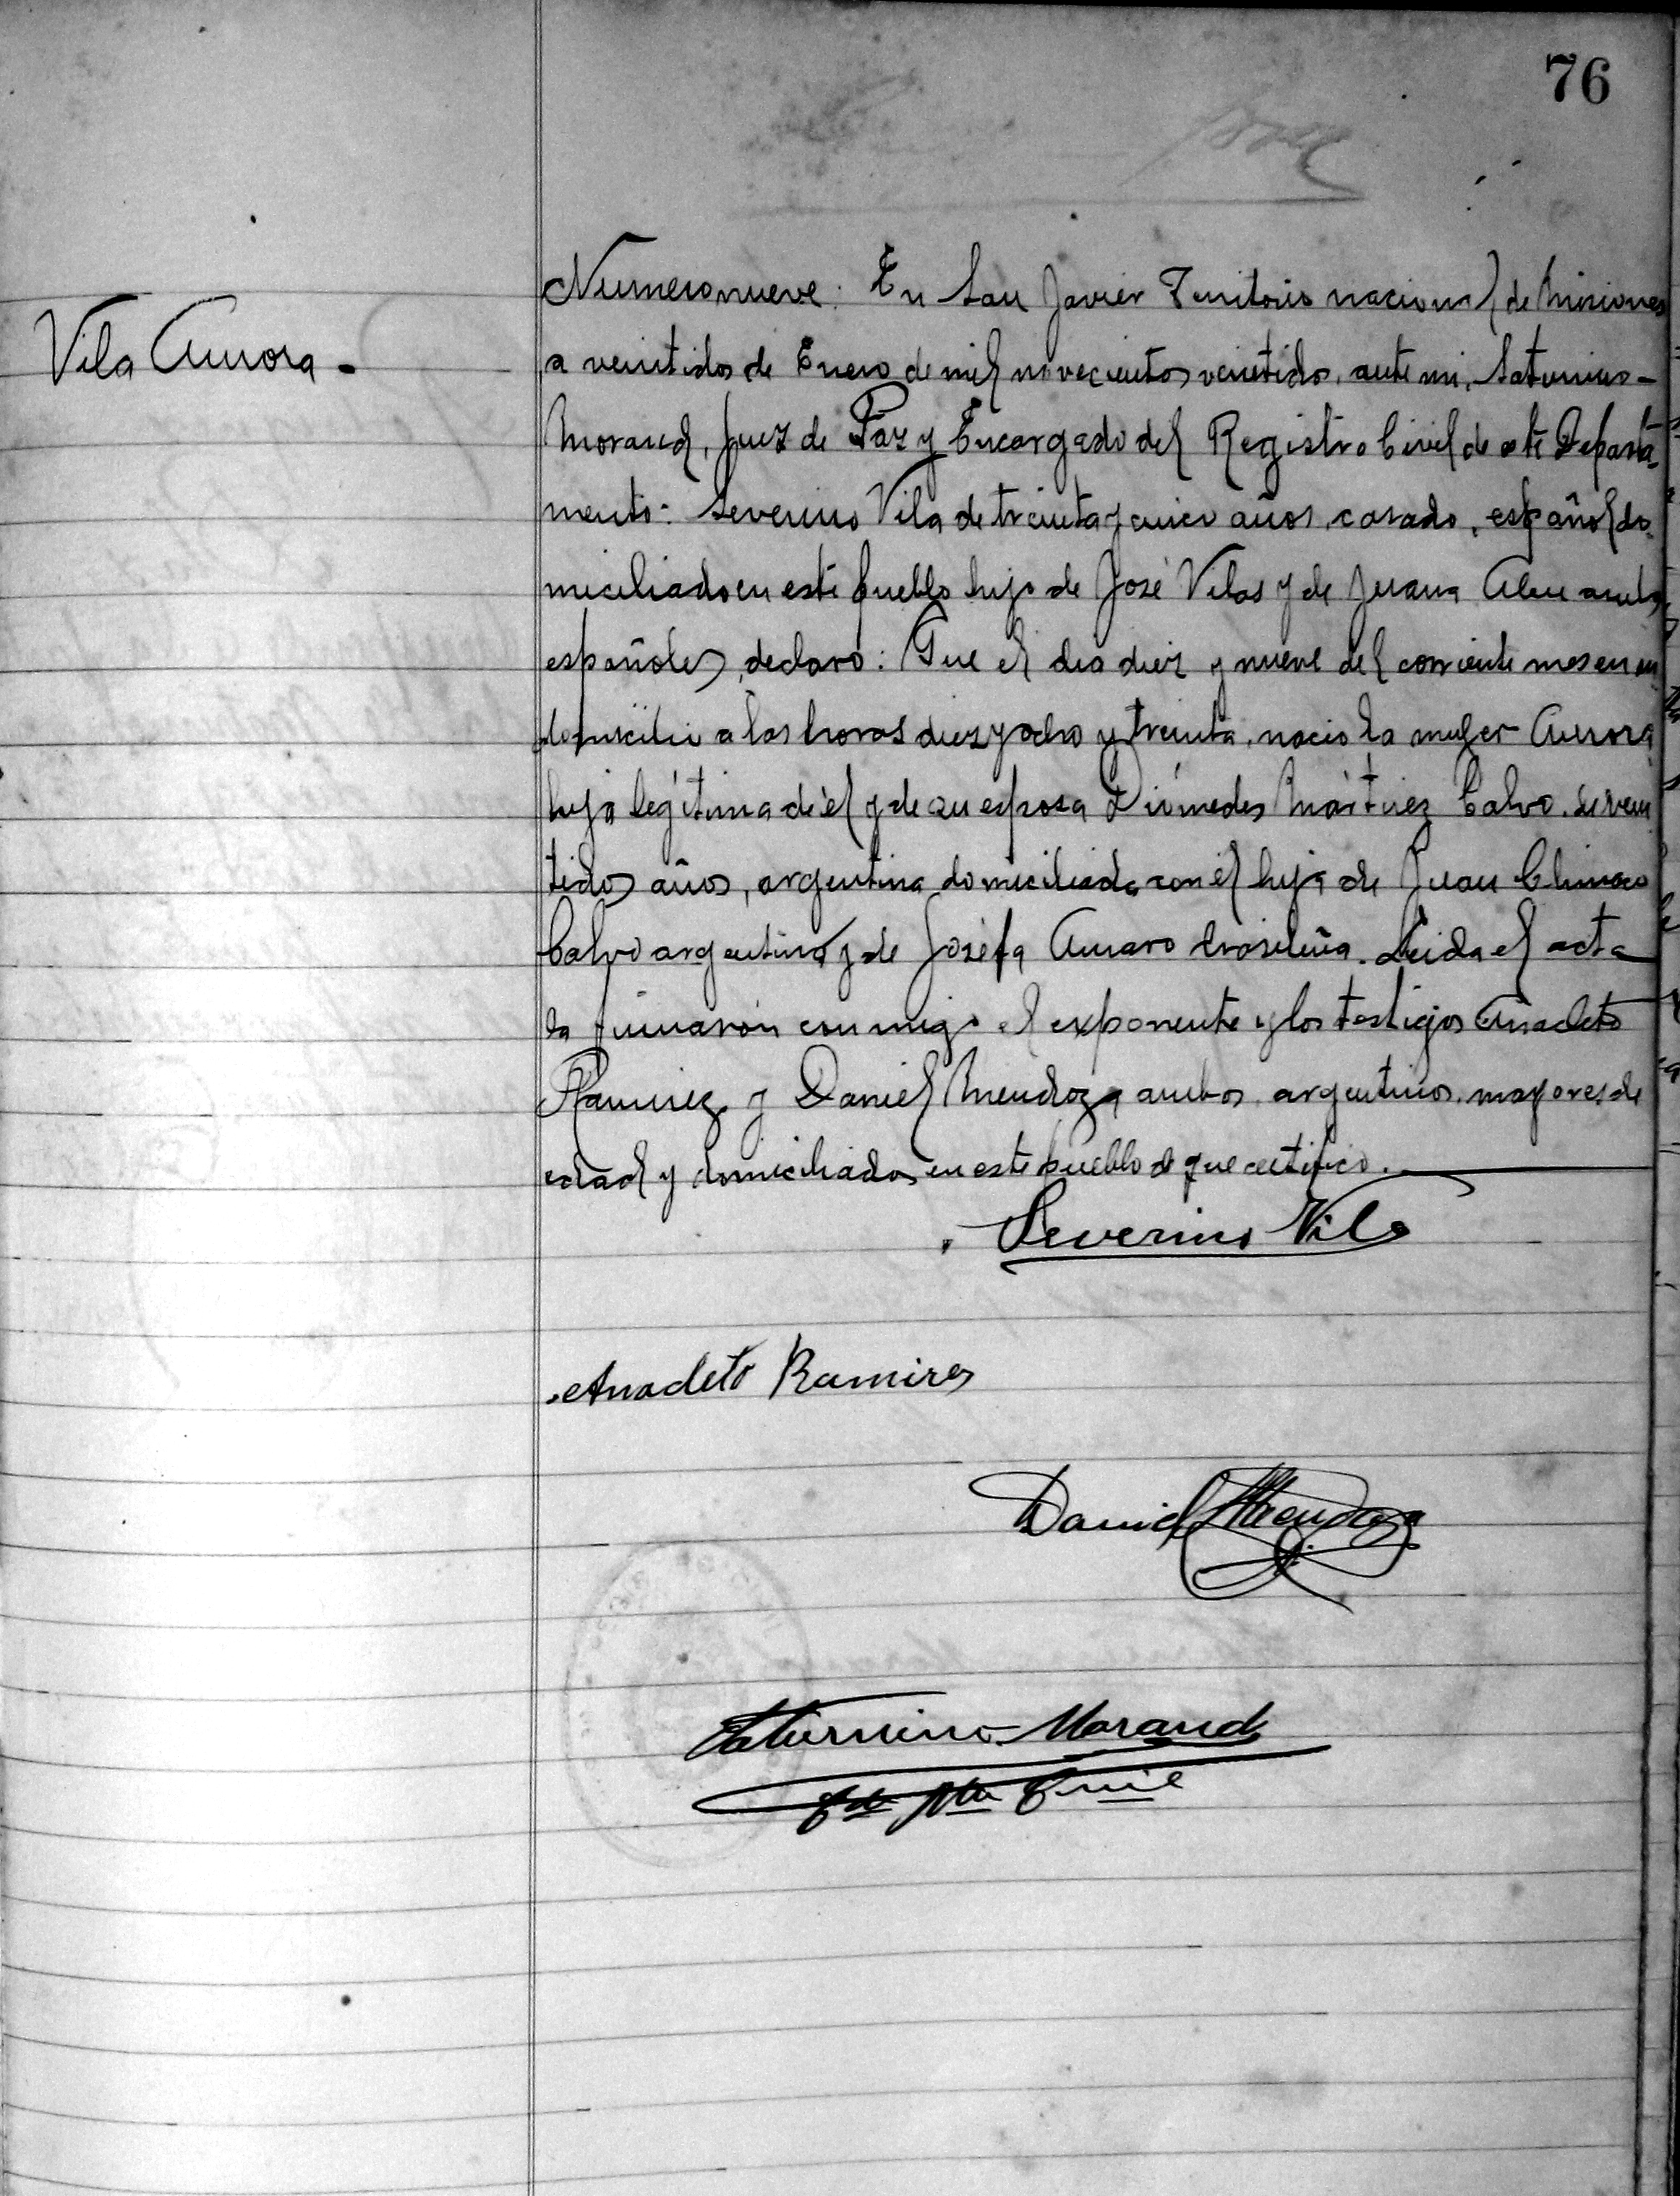 76
Vila Aurora.-
Numero nueve: En San Javier Territorio nacional de Misiones
a veintidos de Enero de mil novecientos veintidos, ante mi, Saturnino-
Morand, Juez de Paz y Encargado del Registro Civil de este Departa-
mento: Severino Vila de treinta y cinco años, casado, español do-
miciliado en este pueblo hijo de José Vilas y de Juana
españoles, declaro: Que el dia diez y nueve del corriente mes en su
domicilio a las horas diez y ocho y treinta, nacio la mujer Aurora
hija legitima de él y de su esposa Diomedes Martinez Calvo, de vein
tidos años, argentina domiciliada con él hija de Juan Climaco
Calvo argentino y de Josefa Amaro brasileña. Leida el acta
la firmaron conmigo el exponente y los testigos Anacleto
Ramirez y Daniel Mendoza ambos argentinos mayores de
edad y domiciliados en este pueblo de que certifico.
Severino Vila
Anacleto Ramires
Daniel Mendoza
Saturnino Morand